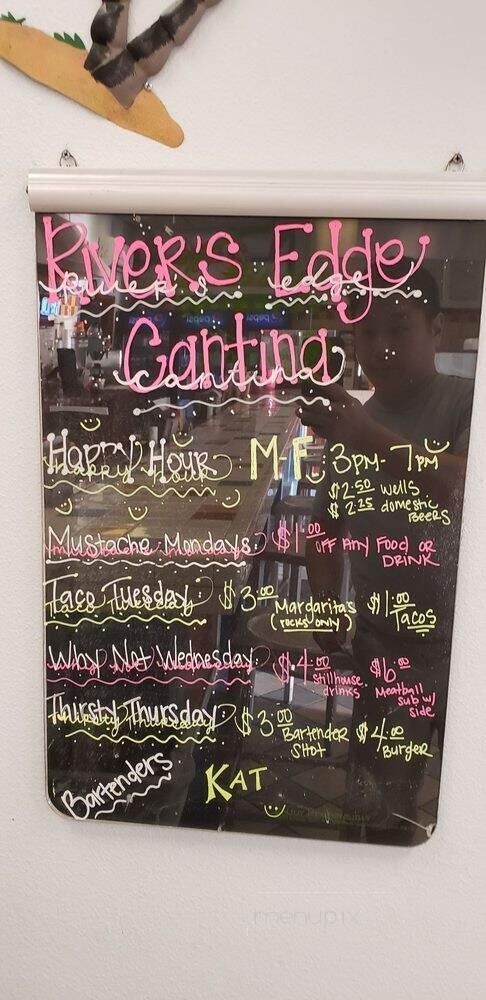 River's Edge
river's edge
Cantina
cantina
Happy Hour M-F: 3pm- 7pm
happy hour
$2.50 wells
$2.25 domestic
Beers
Mustache Mondays: $1.00 OFF Any Food OR
DRINK
Taco Tuesday: $3.00 Margaritas $1.00
(rocks only) Tacos
Why Not Wednesday: $4.00 $6.00
Stillhouse drinks
Meatball Sub w/ side
Thirsty Thursday: $3.00 Bartender $4.00
Shot Burger
Bartenders KAT
menupix